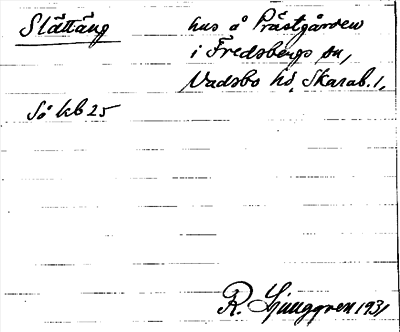 Slättäng
hus å Prästgården
i Fredsbergs sn,
Vadsbo hd, Skarab. l.
Så kb 25
R. Ljunggren 1931